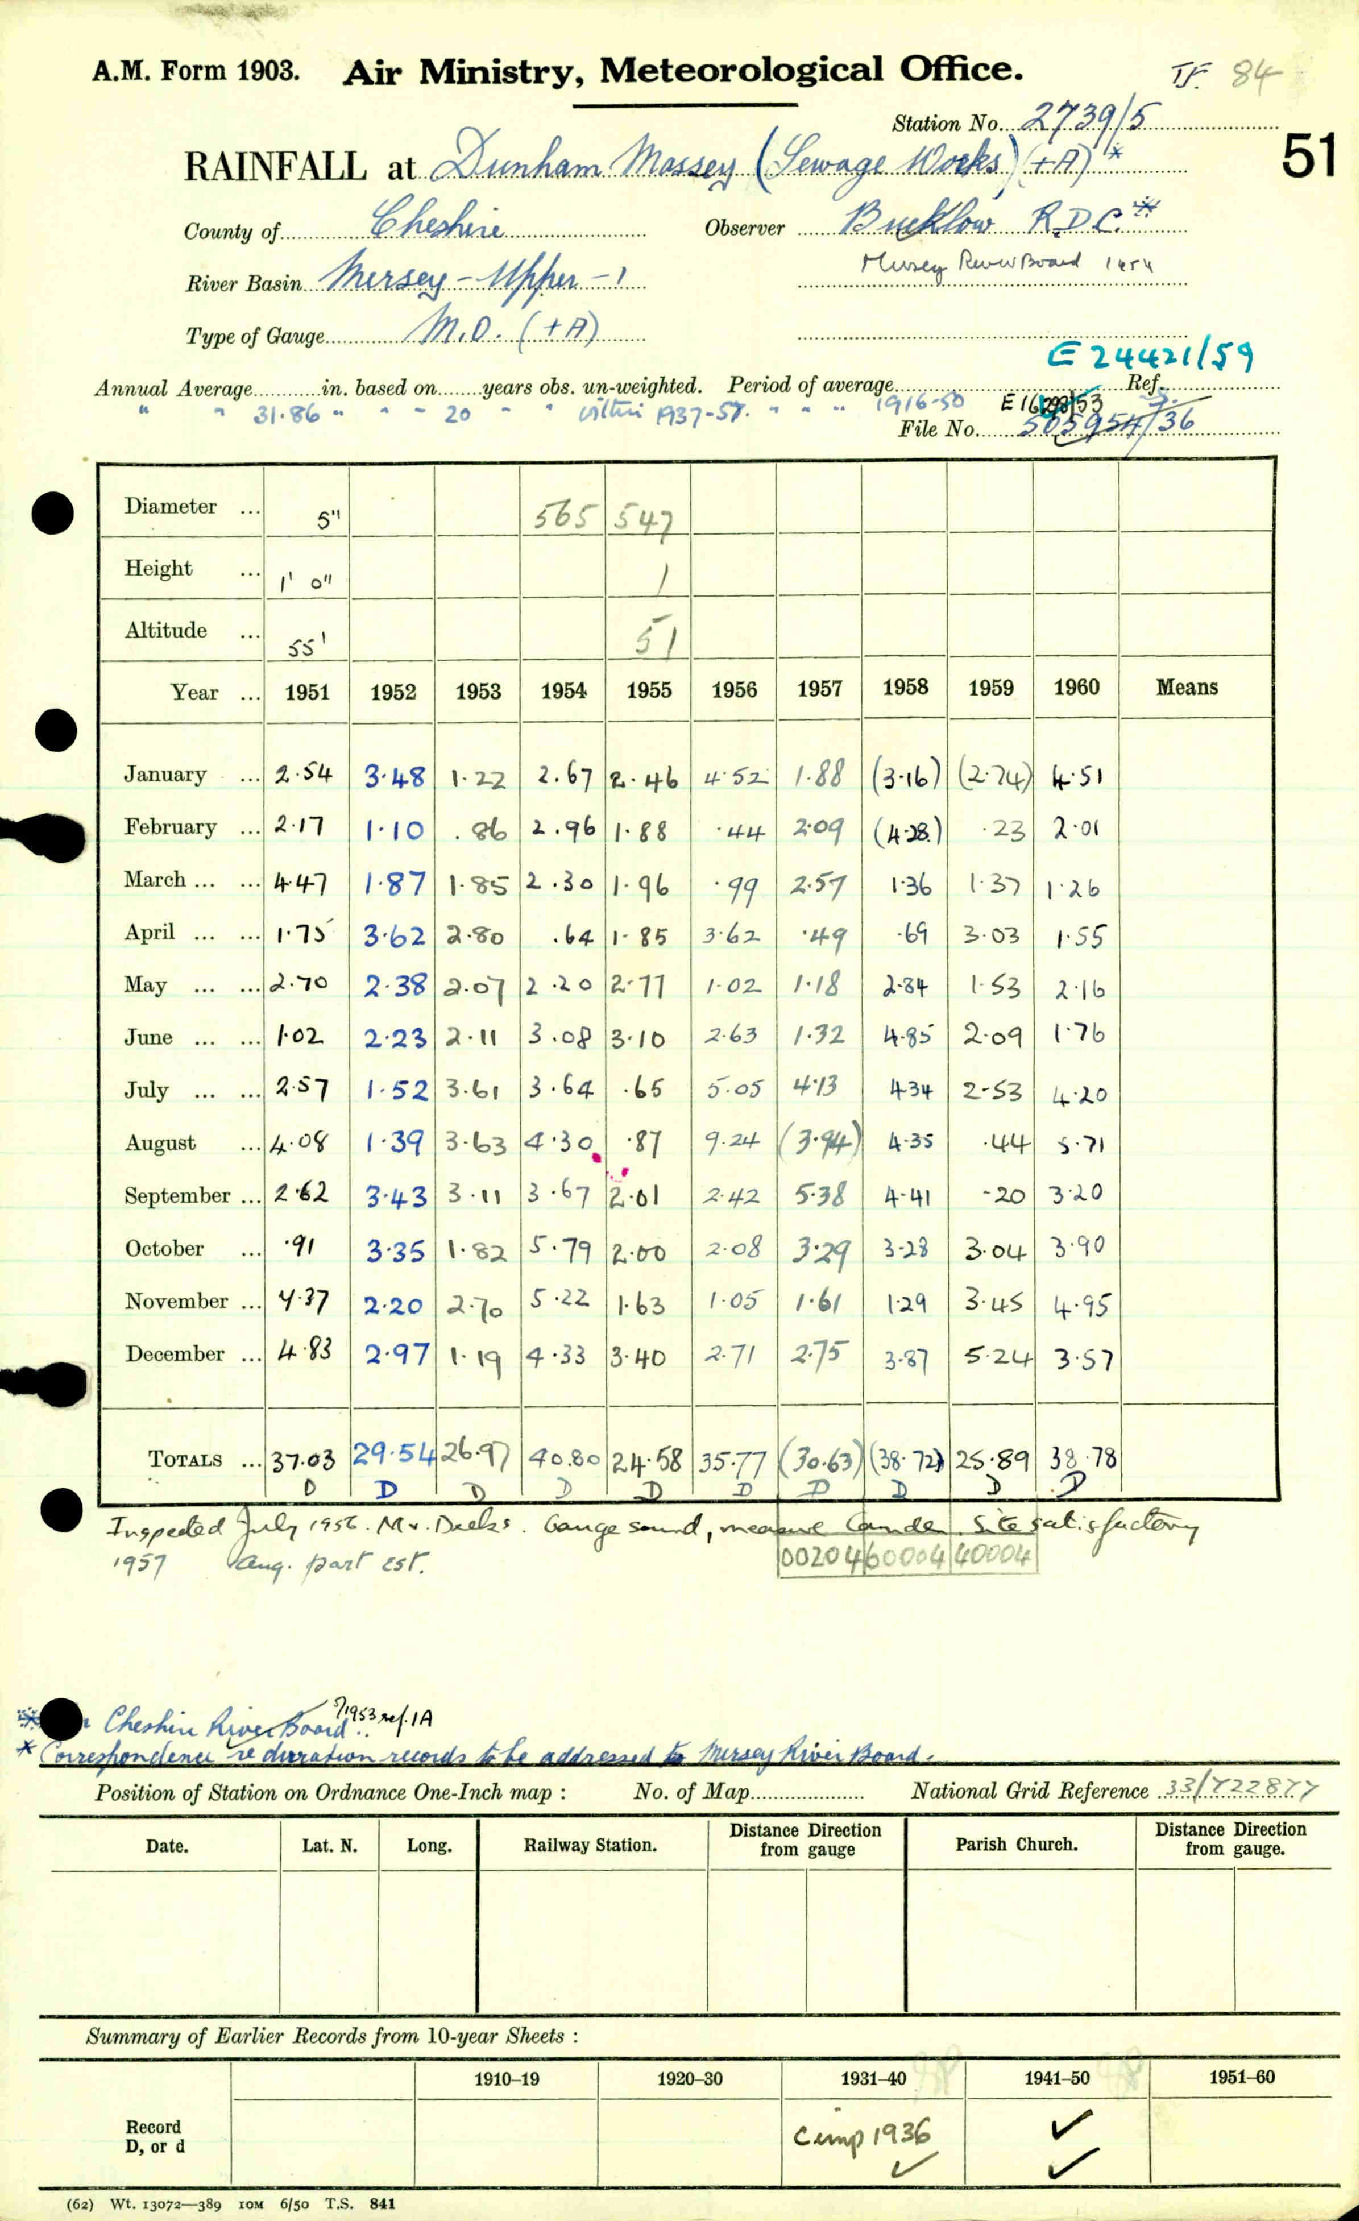 A.M. Form 1903. Air Ministry, Meteorological Office. 84
Station No. 2739/5
51
RAINFALL at Dunham Massey (Sewage Works) (+A)*
County of Cheshire Observer Bucklow R.D.C.*
River Basin Mersey - Upper - 1 Mersey River Board 1954
Type of Gauge M.O. (+A)
E 24421/59
Annual Average............in. based on........years obs. un-weighted. Period of average............ Ref.
" " 31.86 " " " 20 " " within 1937-57. " " " 1916-50
File No. 505954/36
Diameter ... 5" 565 547
Height ... 1' 0" 1
Altitude ... 55' 51
Year ... 1951 1952 1953 1954 1955 1956 1957 1958 1959 1960 Means
January ... 2.54 3.48 1.22 2.67 2.46 4.52 1.88 (3.16) (2.74) 4.51
February ... 2.17 1.10 .86 2.96 1.88 .44 2.09 (4.28) .23 2.01
March ... ... 4.47 1.87 1.85 2.30 1.96 .99 2.57 1.36 1.37 1.26
April ... ... 1.75 3.62 2.80 .64 1.85 3.62 .49 .69 3.03 1.55
May ... ... 2.70 2.38 2.07 2.20 2.77 1.02 1.18 2.84 1.53 2.16
June ... ... 1.02 2.23 2.11 3.08 3.10 2.63 1.32 4.85 2.09 1.76
July ... ... 2.57 1.52 3.61 3.64 .65 5.05 4.13 4.34 2.53 4.20
August ... 4.08 1.39 3.63 4.30 .87 9.24 (3.94) 4.35 .44 5.71
September ... 2.62 3.43 3.11 3.67 2.01 2.42 5.38 4.41 .20 3.20
October ... .91 3.35 1.82 5.79 2.00 2.08 3.29 3.28 3.04 3.90
November ... 4.37 2.20 2.70 5.22 1.63 1.05 1.61 1.29 3.45 4.95
December ... 4.83 2.97 1.19 4.33 3.40 2.71 2.75 3.87 5.24 3.57
TOTALS ... 37.03 29.54 26.97 40.80 24.58 35.77 (30.63) (38.72) 25.89 38.78
D D D D D D D D D D
Inspected July 1956. Mr. Gauge sound, measure Camden. Site satisfactory
1957 Aug. part est. 00204 60004 40004
Cheshire River Board 1953 ref. 1A
* Correspondence re duration records to be addressed to Mersey River Board.
Position of Station on Ordnance One-Inch map : No. of Map.................... National Grid Reference 33/722877
Date. Lat. N. Long. Railway Station. Distance Direction from gauge Parish Church. Distance Direction from gauge.
Summary of Earlier Records from 10-year Sheets :
1910–19 1920–30 1931–40 1941–50 1951–60
Record
D, or d
Comp 1936 ✓ ✓ ✓
(62) Wt. 13072—389 10M 6/50 T.S. 841